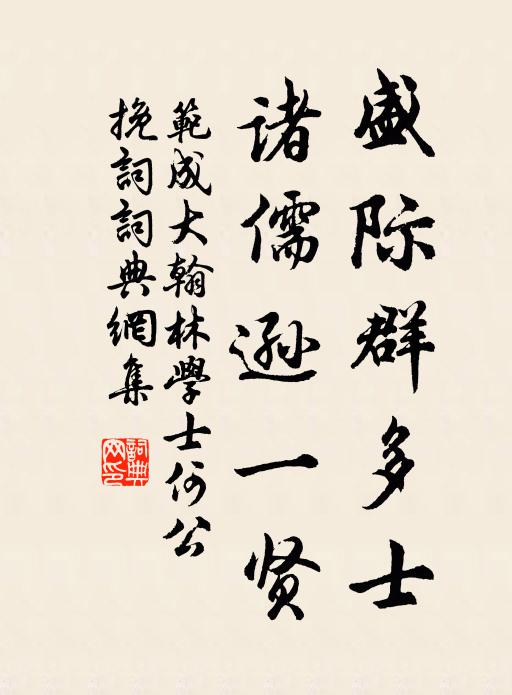 盛际群多士
诸儒逊一贤
範成大翰林學士何公
挽詞詞典網集
詞典
网印